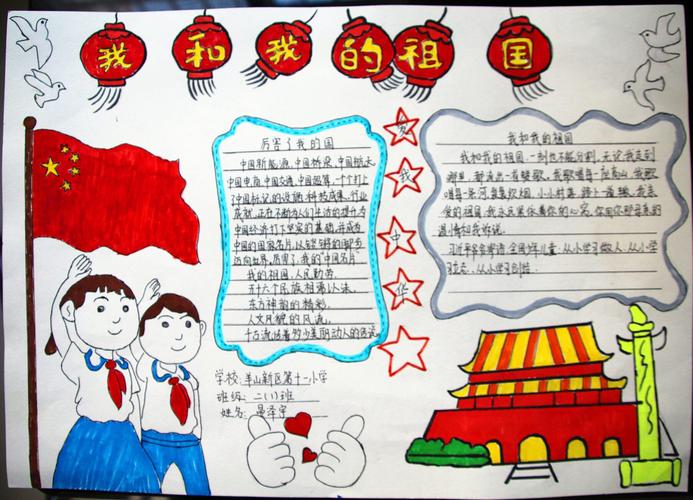 我和我的祖国
厉害了我的国
中国新能源、中国桥梁、中国航天
中国电商、中国交通、中国超算,一个个打上
了中国标记的设施、科技成果、行业
成就,正在不断为人们生活的提升与
中国经济打下坚实的基础,并成为
中国的国家名片,以铿锵的脚步
迈向世界,厉害了,我的"中国名片"
我的祖国,人民勤劳。
五十六个民族相濡以沫。
东方神韵的精彩。
人文风貌的风流。
千古流传着多少美丽动人的传说
爱
我
中
华
我和我的祖国
我和我的祖国一刻也不能分割,无论我走到
哪里,都流出一首赞歌,我歌唱每一座高山,我歌
唱每一条河,袅袅炊烟,小小村落,路上一道辙,我亲
爱的祖国,我永远紧依着你的心窝,你用你那母亲的
温情和我诉说。
习近平爷爷寄语全国少年儿童:从小学习做人、从小学习
立志、从小学习创造
学校:羊山新区第十一小学
班级:二(1)班
姓名:晏泽宇